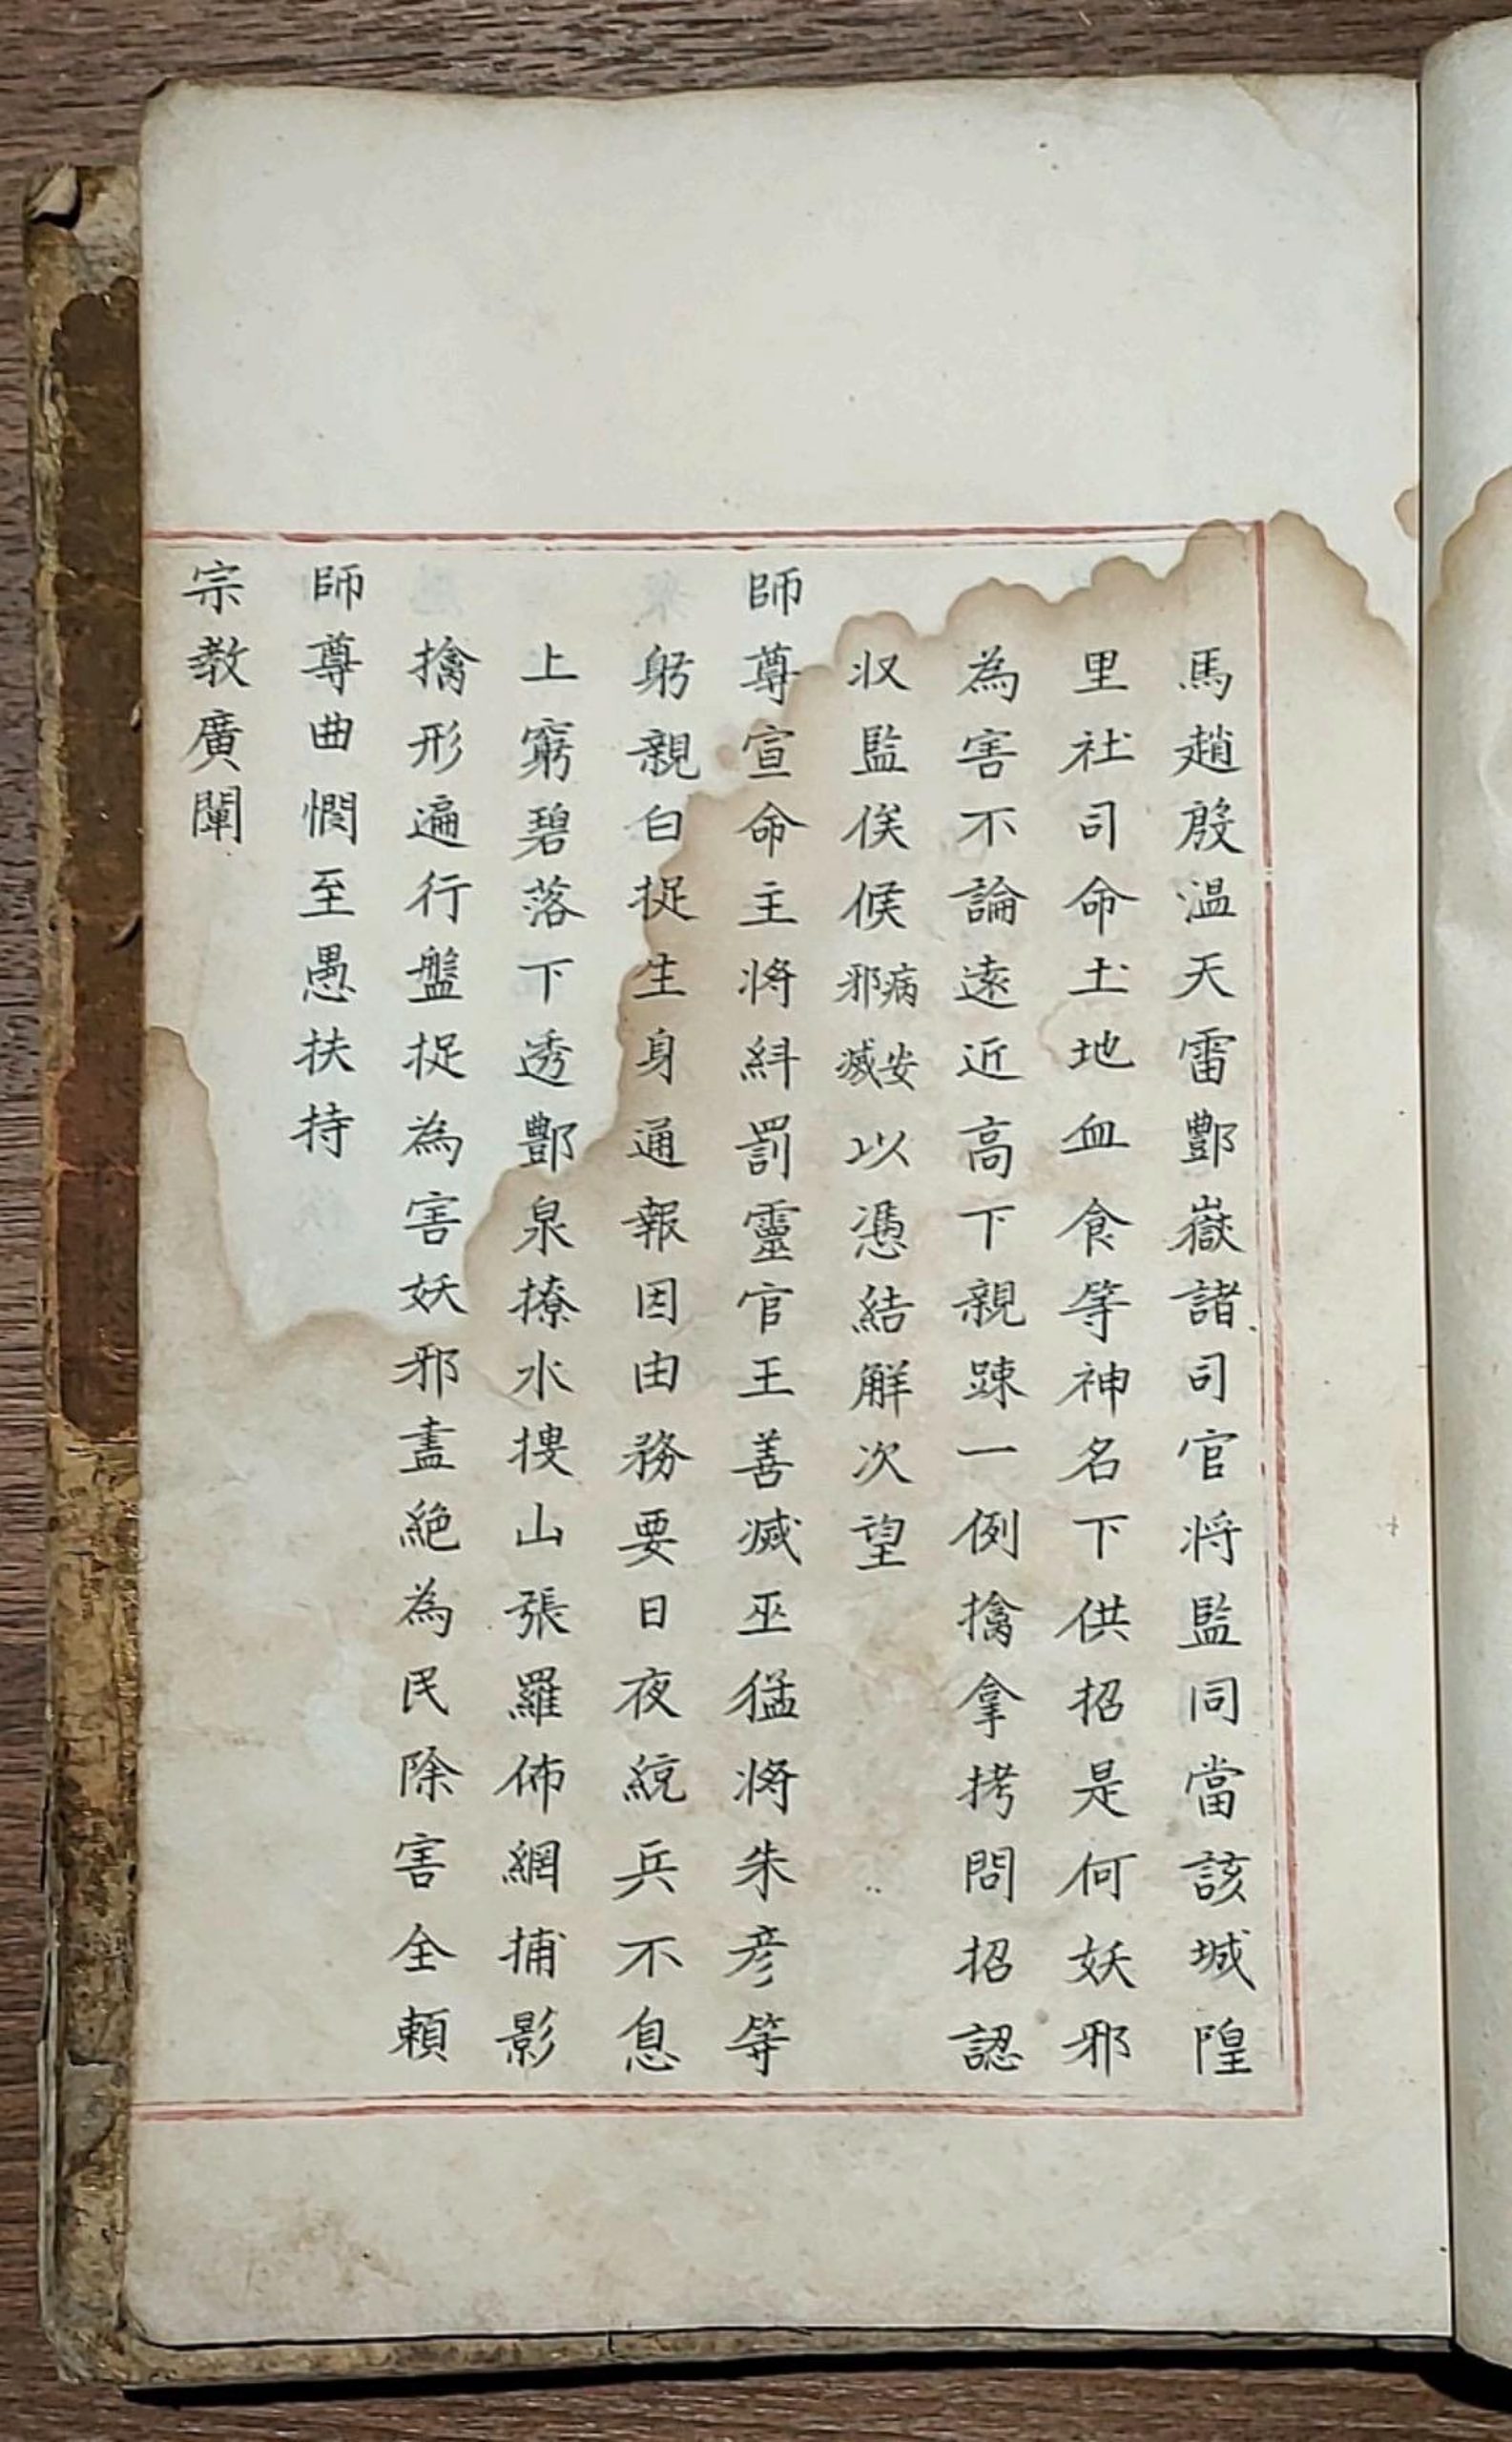 馬趙殷温天雷酆嶽諸司官将監同當該城隍
里社司命土地血食等神名下供招是何妖邪
為害不論遠近高下親踈一例擒拿拷問招認
収監俟候病安邪滅以憑結觧次望
師尊宣命主将糾罰靈官王善滅巫猛将朱彦等
躬親白捉生身通報因由務要日夜統兵不息
上窮碧落下透酆泉撩水搜山張羅佈網捕影
擒形遍行盤捉為害妖邪盡絶為民除害全頼
師尊曲憫至愚扶持
宗教廣闡